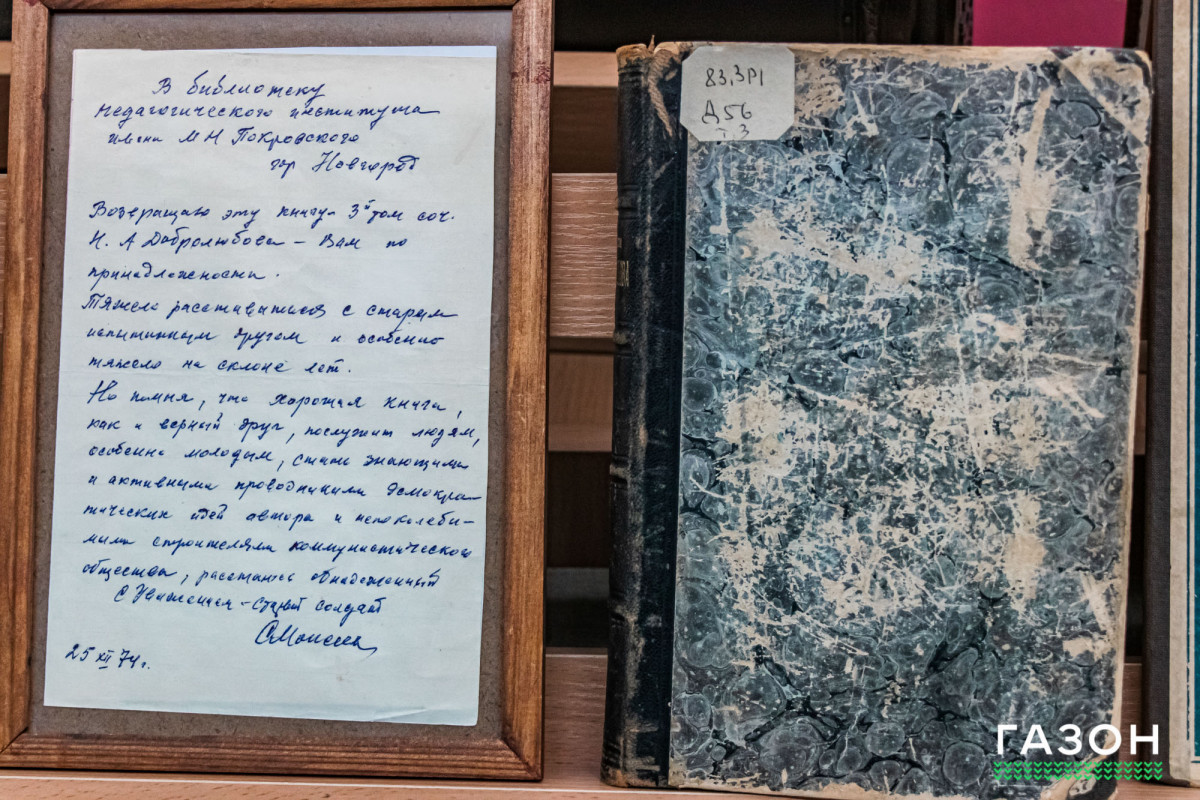 В библиотеку
педагогического института
имени М Н Покровского
гор Новгород
Возвращаю эту книгу – 3й том соч.
Н. А Добролюбова – Вам по
принадлежности.
Тяжело расставаться с старым
испытанным другом и особенно
тяжело на склоне лет.
Но помня, что хорошая книга,
как и верный друг, послужит людям,
особенно молодым, стать знающими
и активными проводниками демокра-
тических идей автора и непоколеби-
мыми строителями коммунистического
общества, расстаюсь обнадеженный
С Уважением – старый солдат
25 XII 74 г.
83.3Р1
Д56
т. 3
ГАЗОН